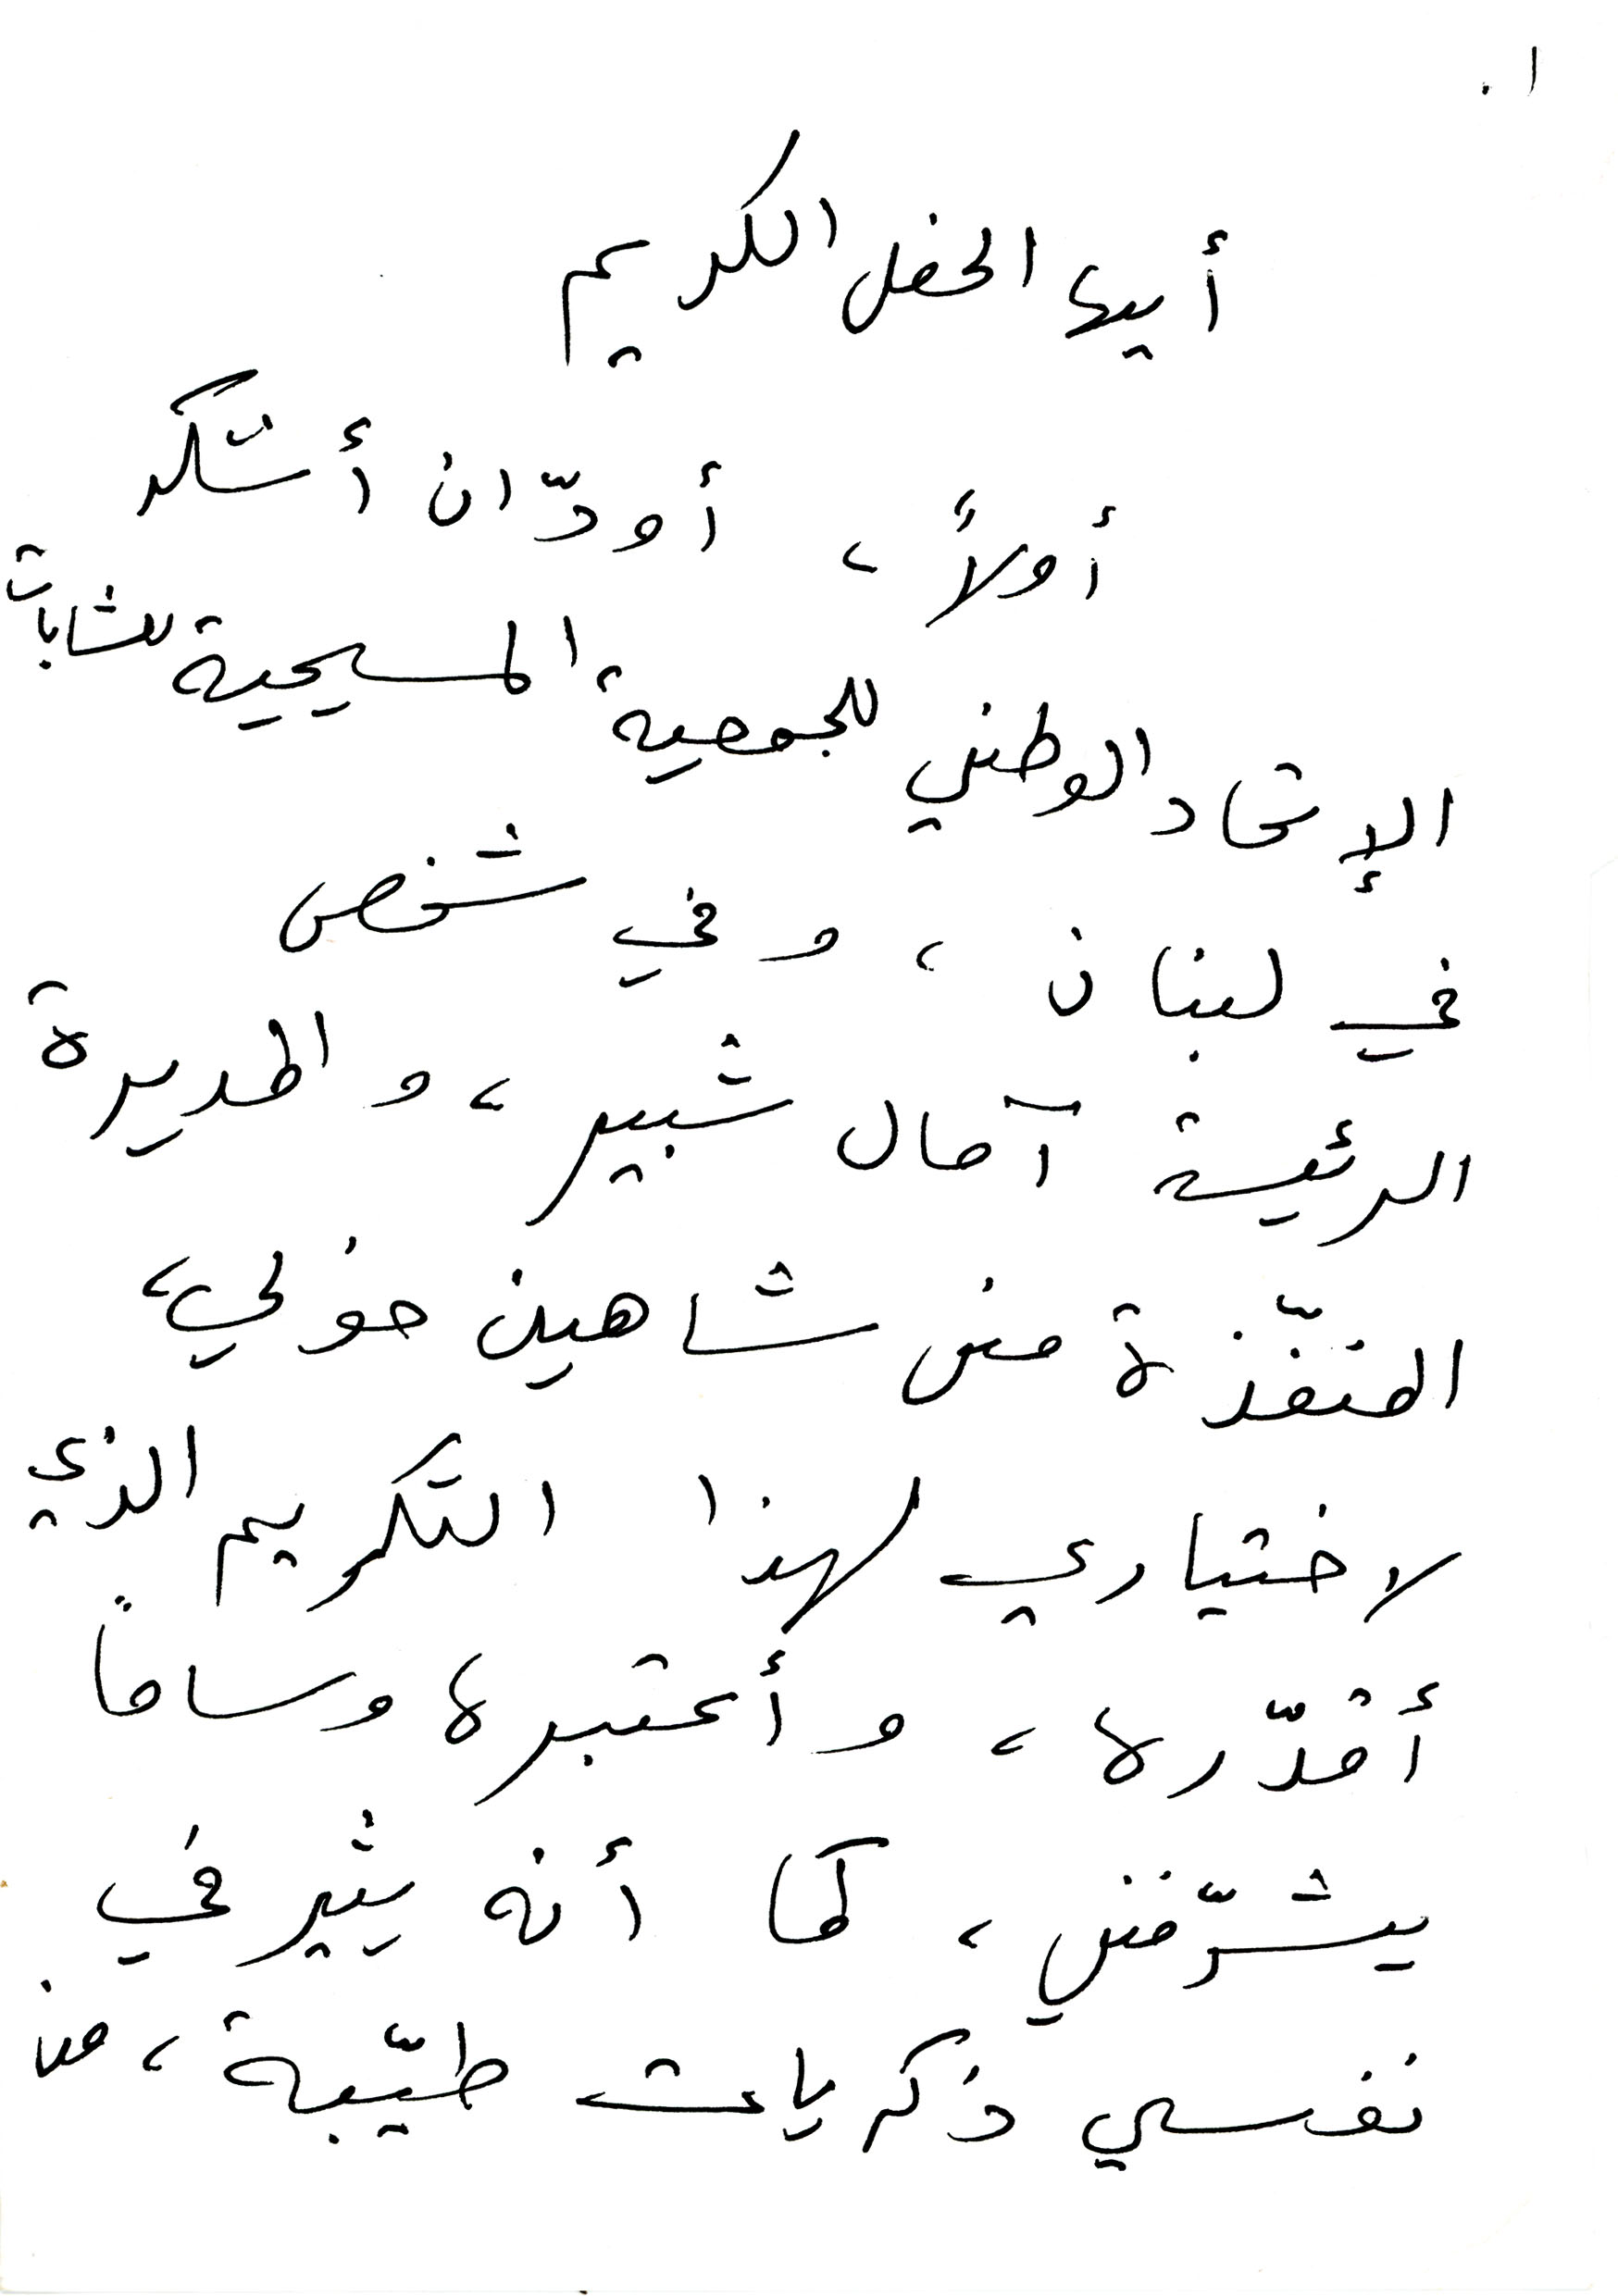 ١.
أيها الحفل الكريم
أولاً، أودّ ان أشكر
الإتحاد الوطني للجمعية المسيحية للشابات
في لبنان، وفي شخص
الرئيسة آمال شبير، والمديرة
المنفّذة منى شاهين خولي،
لاختياري لهذا التكريم الذي
أقدّره، وأعتبره وساماً
يشرّفني، كما أنه يثير في
نفسي ذكريات طيّبة، من